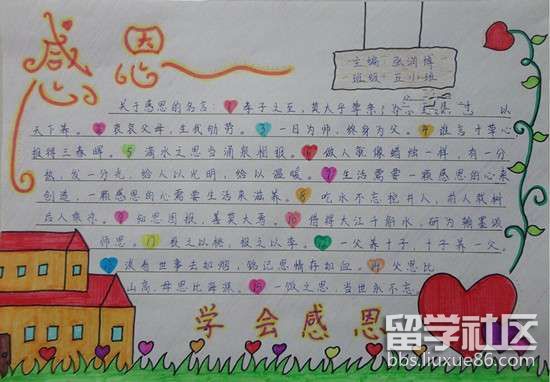 感恩
主编：张润博
班级：五小班
关于感恩的名言：1 孝子之至，莫大乎尊亲； 以
天下养。2 哀哀父母，生我劬劳。3 一日为师，终身为父。4 谁言寸草心，
报得三春晖。5 滴水之恩当涌泉相报。6 做人就像蜡烛一样，有一分
热，发一分光，给人以光明，给以温暖。7 生活需要一颗感恩的心来
创造，一颗感恩的心需要生活来滋养。8 吃水不忘挖井人，前人栽树
后人乘凉。9 知恩图报，善莫大焉。10 借得大江千斛水，研为翰墨颂
师恩。11 投之以桃，报之以李。12 一父养十子，十子养一父。
13 滚看世事去如烟，铭记恩情存如血。14 父恩比
山高，母恩比海深。15 一饭之恩，当世永不忘。
学会感恩
留学社区
bbs.liuxue86.com